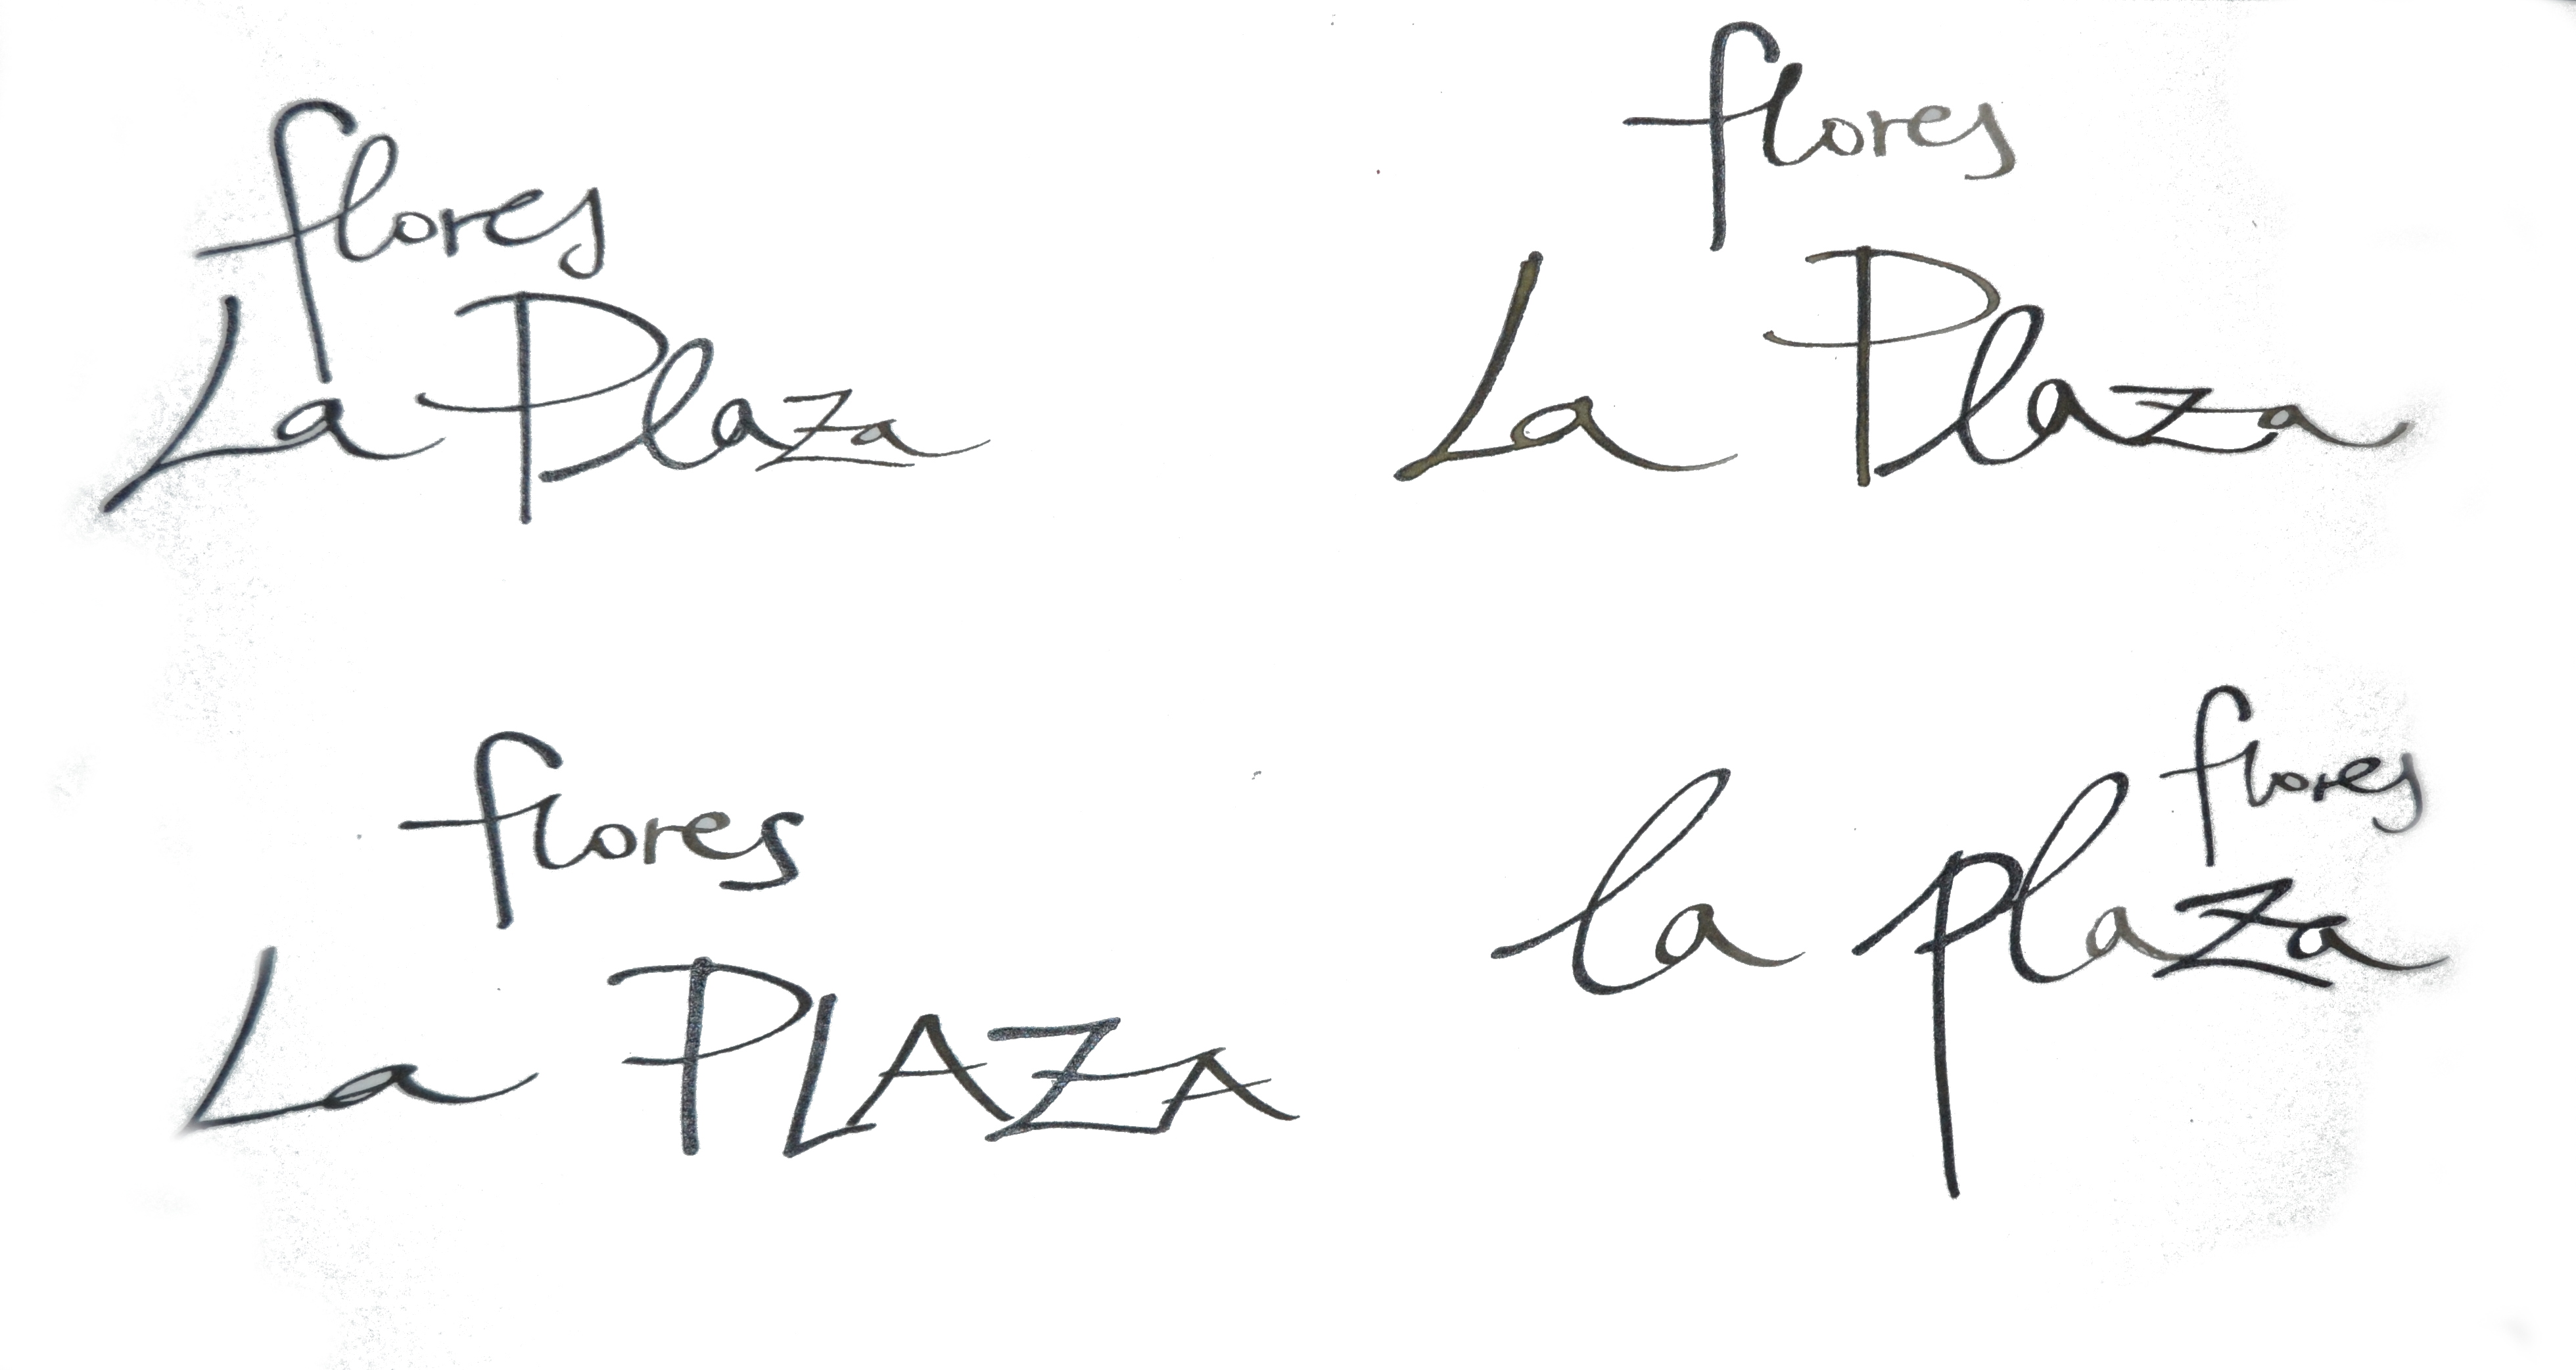 flores
La Plaza
flores
La Plaza
flores
La PLAZA
flores
la plaza